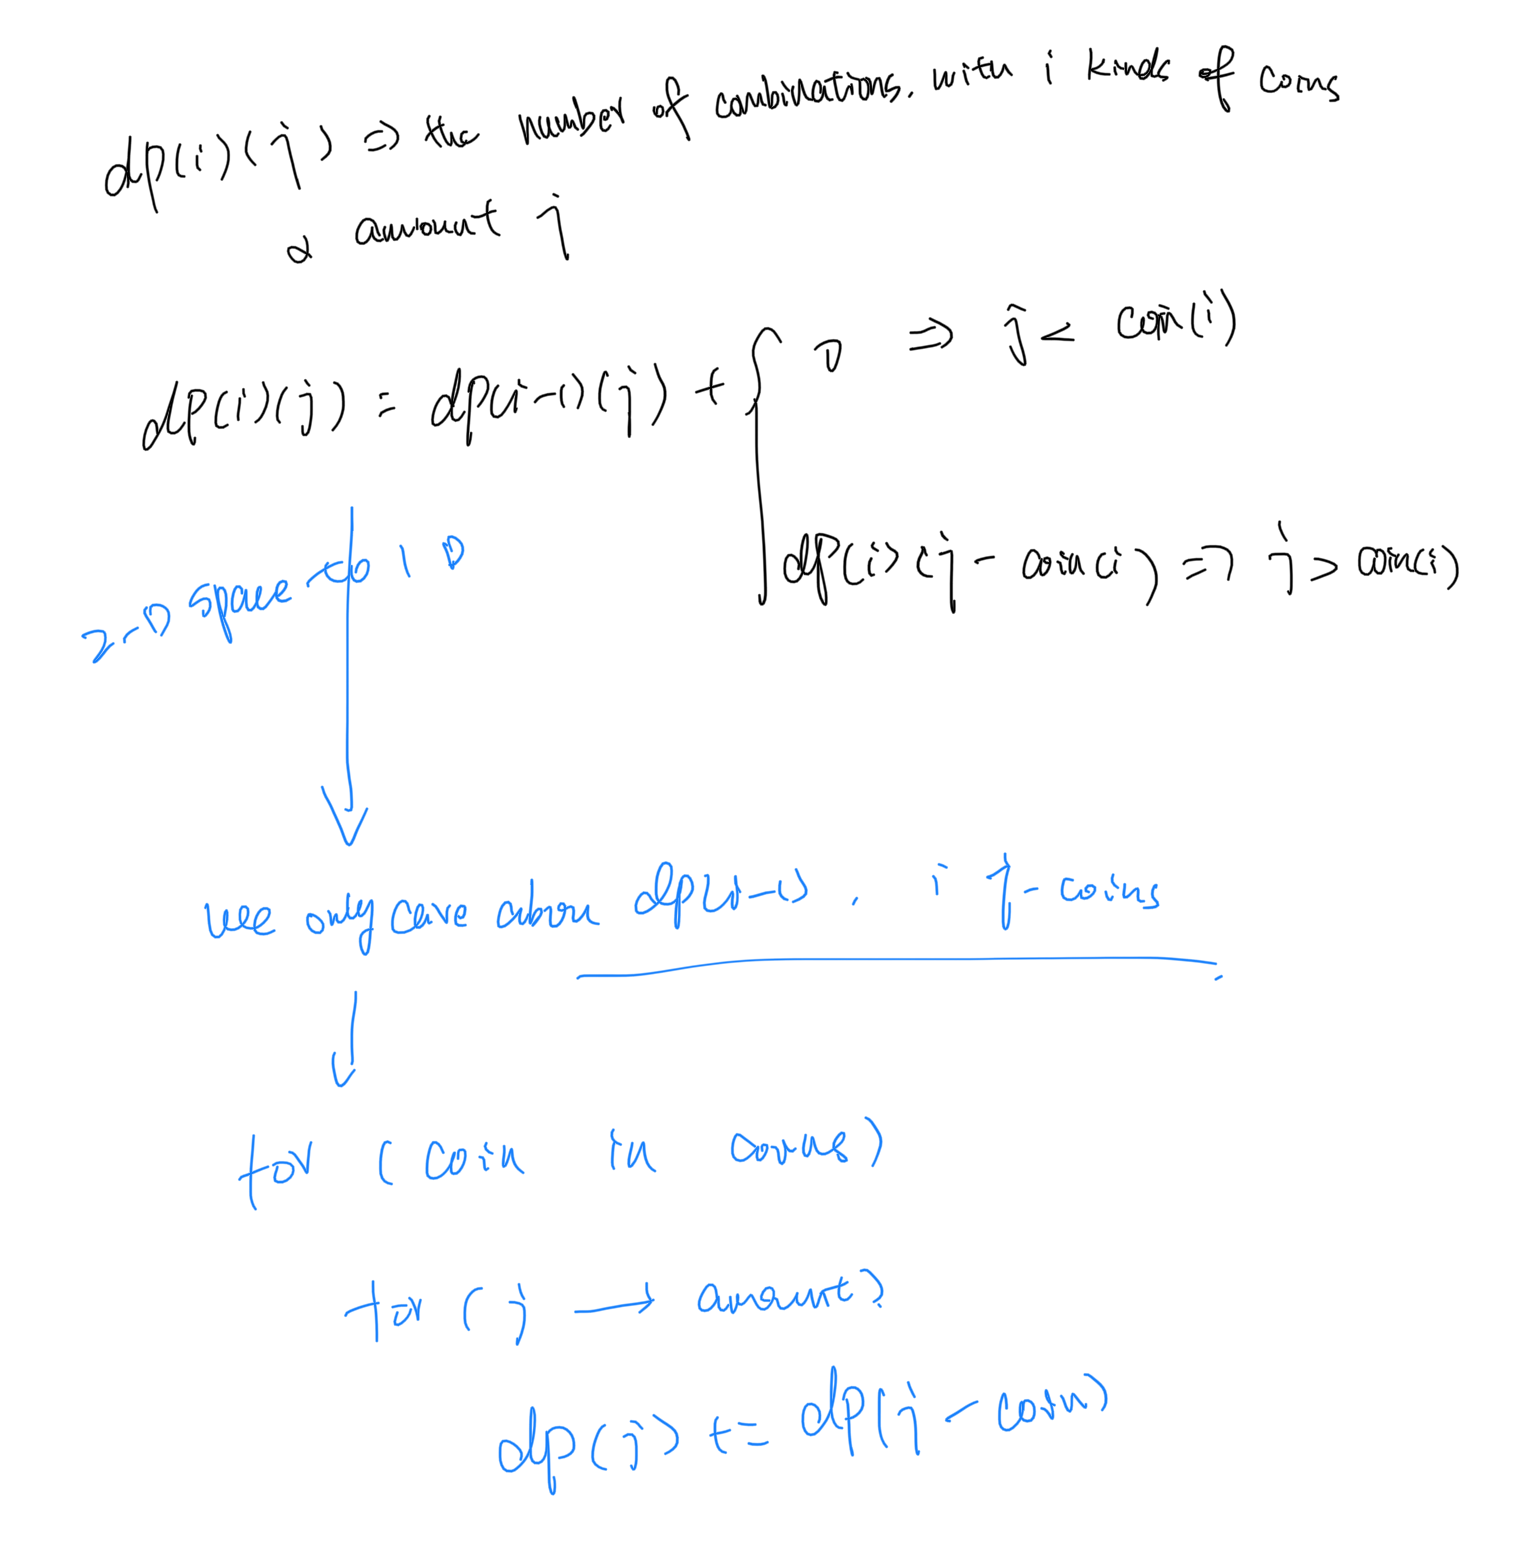 dp(i)(j) => the number of combinations, with i kinds of coins
& amount j
dp(i)(j) = dp(i-1)(j) + { 0 => j < coin(i)
dp(i)(j - coin(i) => j > coin(i)
2-D space to 1 D
we only care abou dp(i-1), i j-coins
for (coin in coins)
for (j → amount)
dp(j) += dp(j - coin)